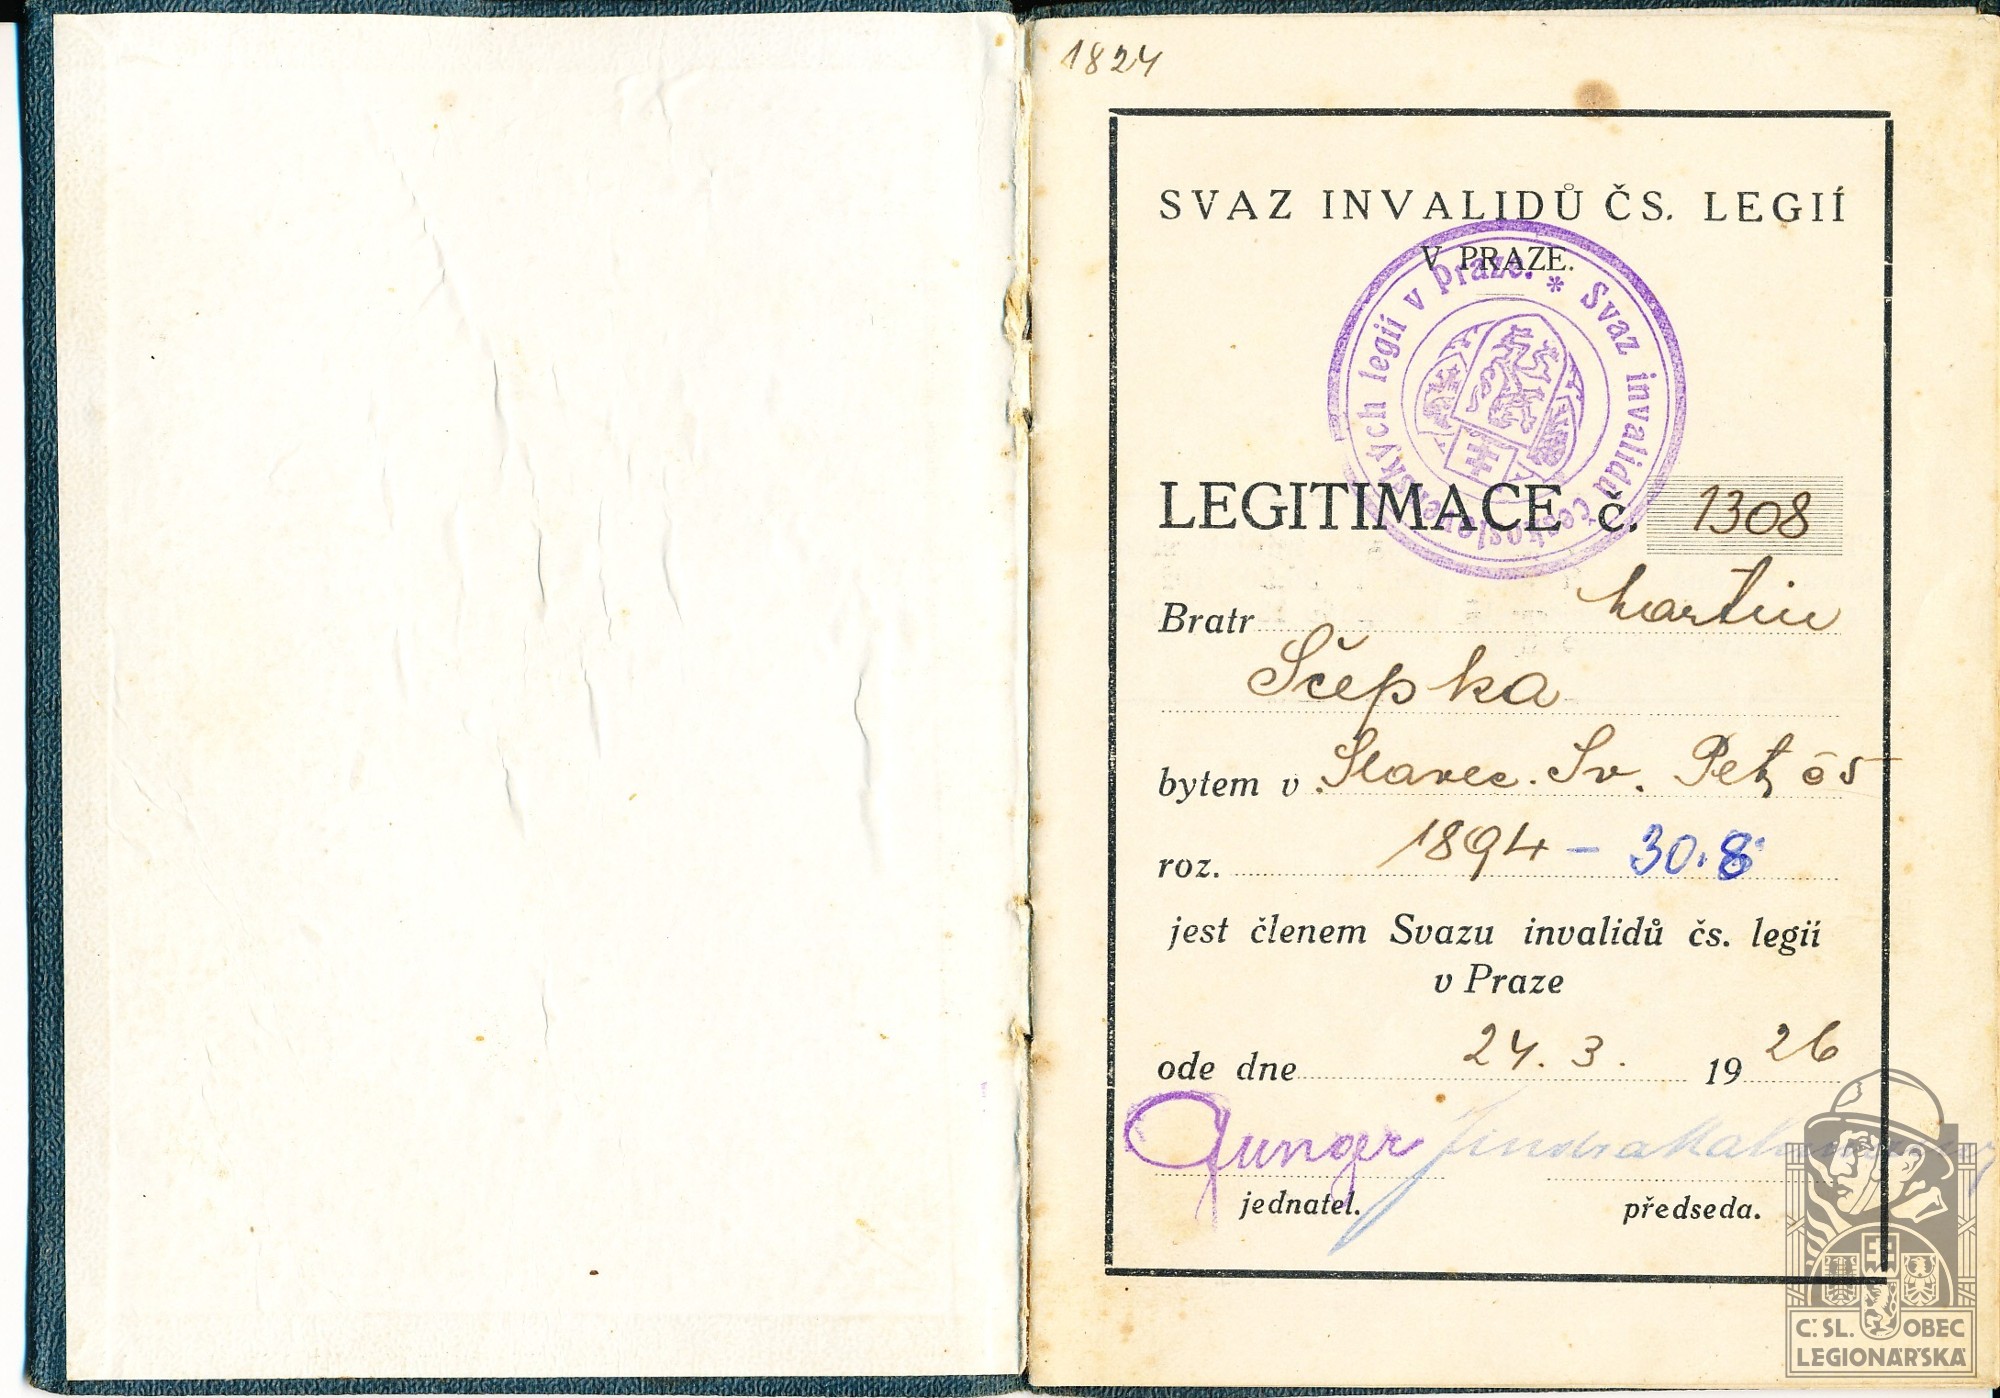 1824
SVAZ INVALIDŮ ČS. LEGIÍ
V PRAZE.
* Svaz invalidů československých legií v Praze.
LEGITIMACE č. 1308
Bratr Martin
Ščepka
bytem v Slavec. Sv. Petr čs
roz. 1894 - 30.8
jest členem Svazu invalidů čs. legií
v Praze
ode dne 24. 3. 1926
Jindra
jednatel.
předseda.
Č.SL. OBEC
LEGIONÁŘSKÁ